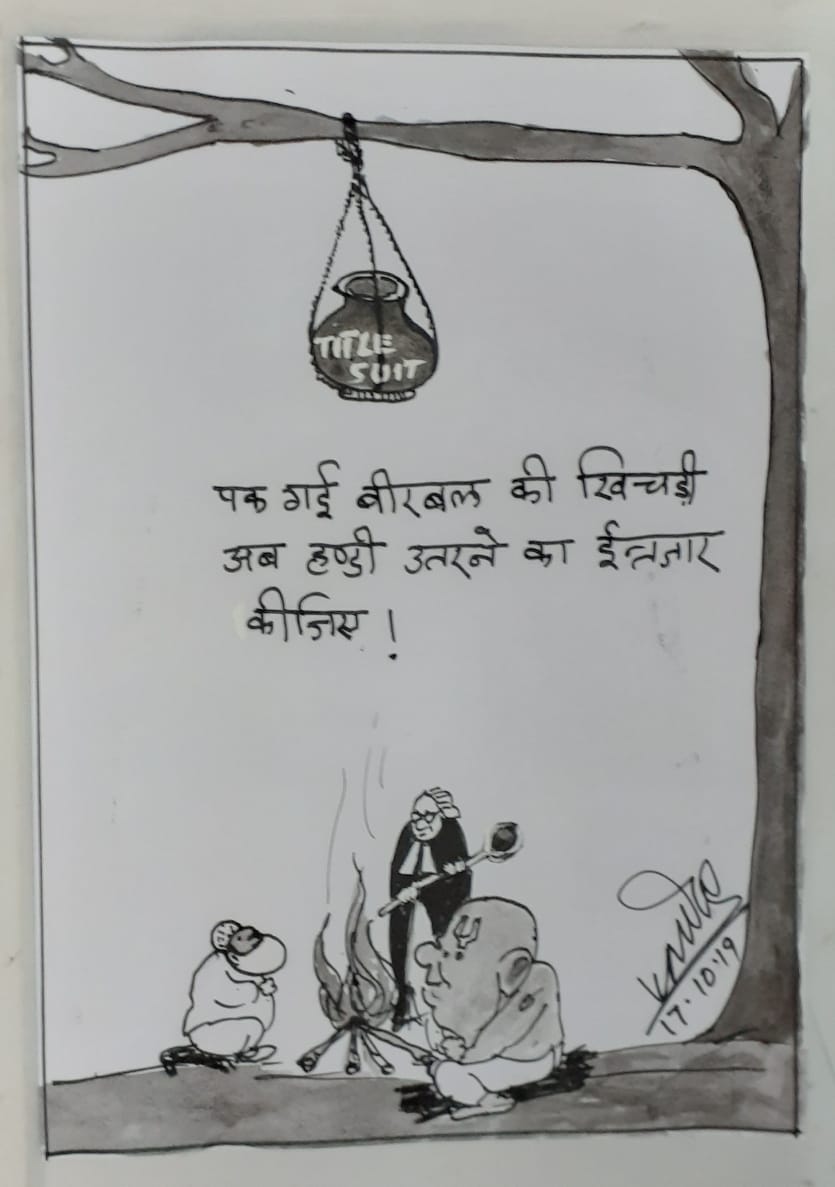 TITLE
SUIT
पक गई बीरबल की खिचड़ी
अब हण्डी उतरने का ईन्तजार
कीजिए !
17.10.19